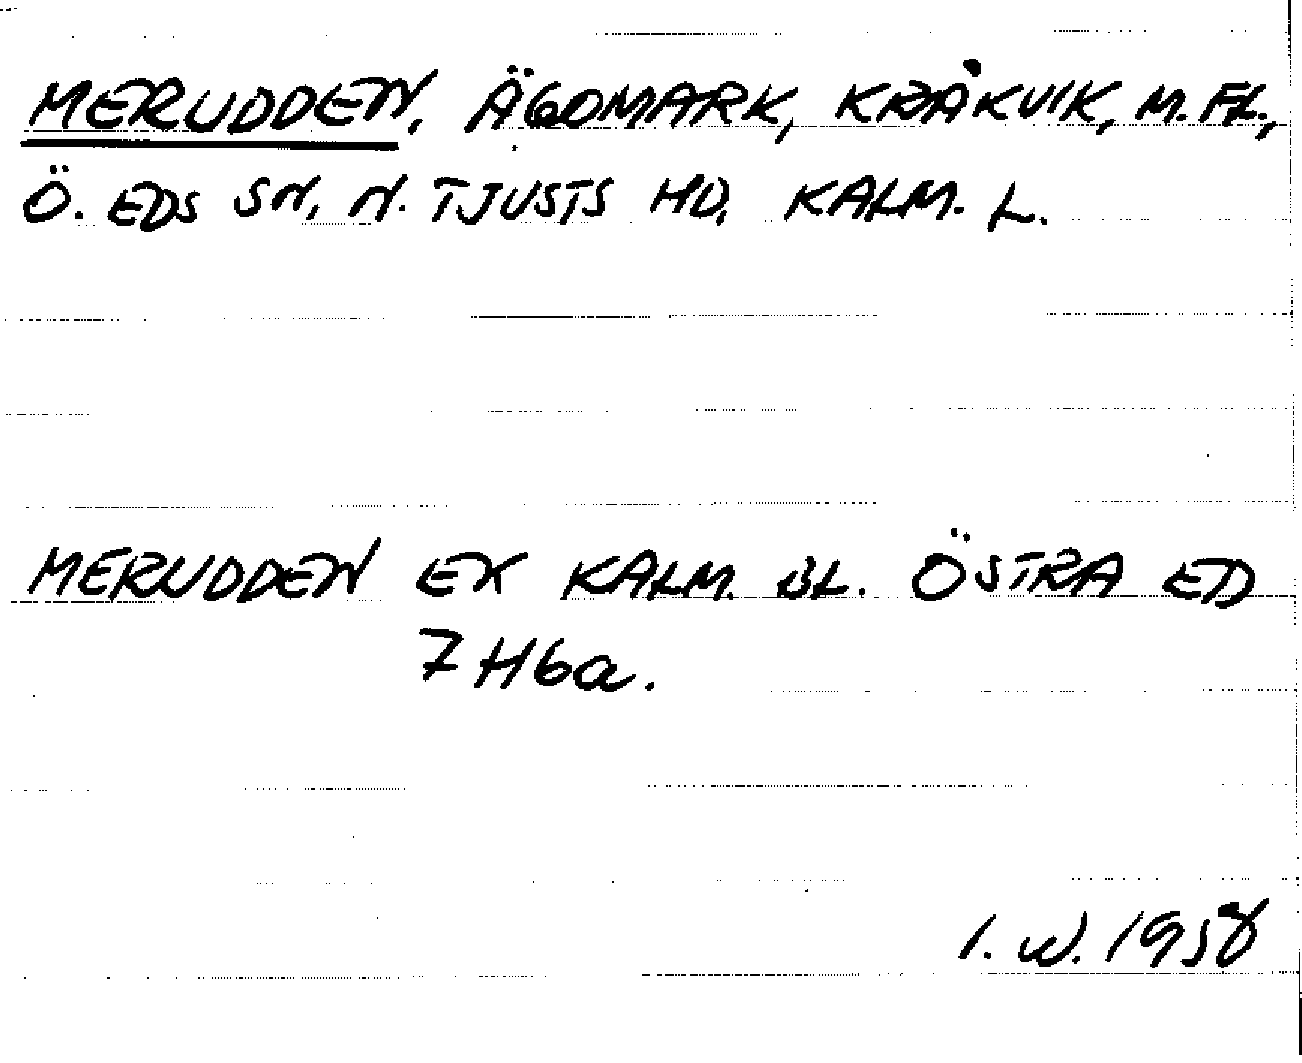 MERUDDEN, ÄGOMARK, KRÅKVIK, M. FL.,
Ö. EDS SN, N. TJUSTS HD, KALM. L.
MERUDDEN EK KALM. BL. ÖSTRA ED
7H6a.
I. W. 1958